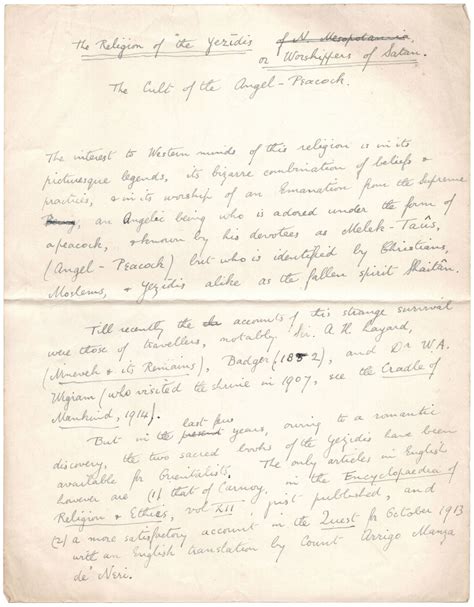 The Religion of the Yezidis of N. Mesopotamia
or Worshippers of Satan.
The Cult of the Angel-Peacock.
The interest to Western minds of this religion is in its
picturesque legends, its bizarre combination of beliefs &
practices, & in its worship of an Emanation from the Supreme
Being, an Angelic being who is adored under the form of
a peacock, & known by his devotees as Melek-Taûs,
(Angel-Peacock) but who is identified by Christians,
Moslems, & Yezidis alike as the fallen spirit Shaitân.
Till recently the accounts of this strange survival
were those of travellers, notably Sir. A H Layard,
(Nineveh & its Remains), Badger (1852), and Dr W.A.
Wigram (who visited the shrine in 1907, see the Cradle of
Mankind, 1914).
last few
But in the present years, owing to a romantic
discovery, the two sacred books of the Yezidis have been
available for Orientalists. The only articles in English
however are (1) that of Carnoy, in the Encyclopaedia of
Religion & Ethics, vol XII just published, and
(2) a more satisfactory account in the Quest for October 1913
with an English translation by Count Arrigo Manza
de' Neri.